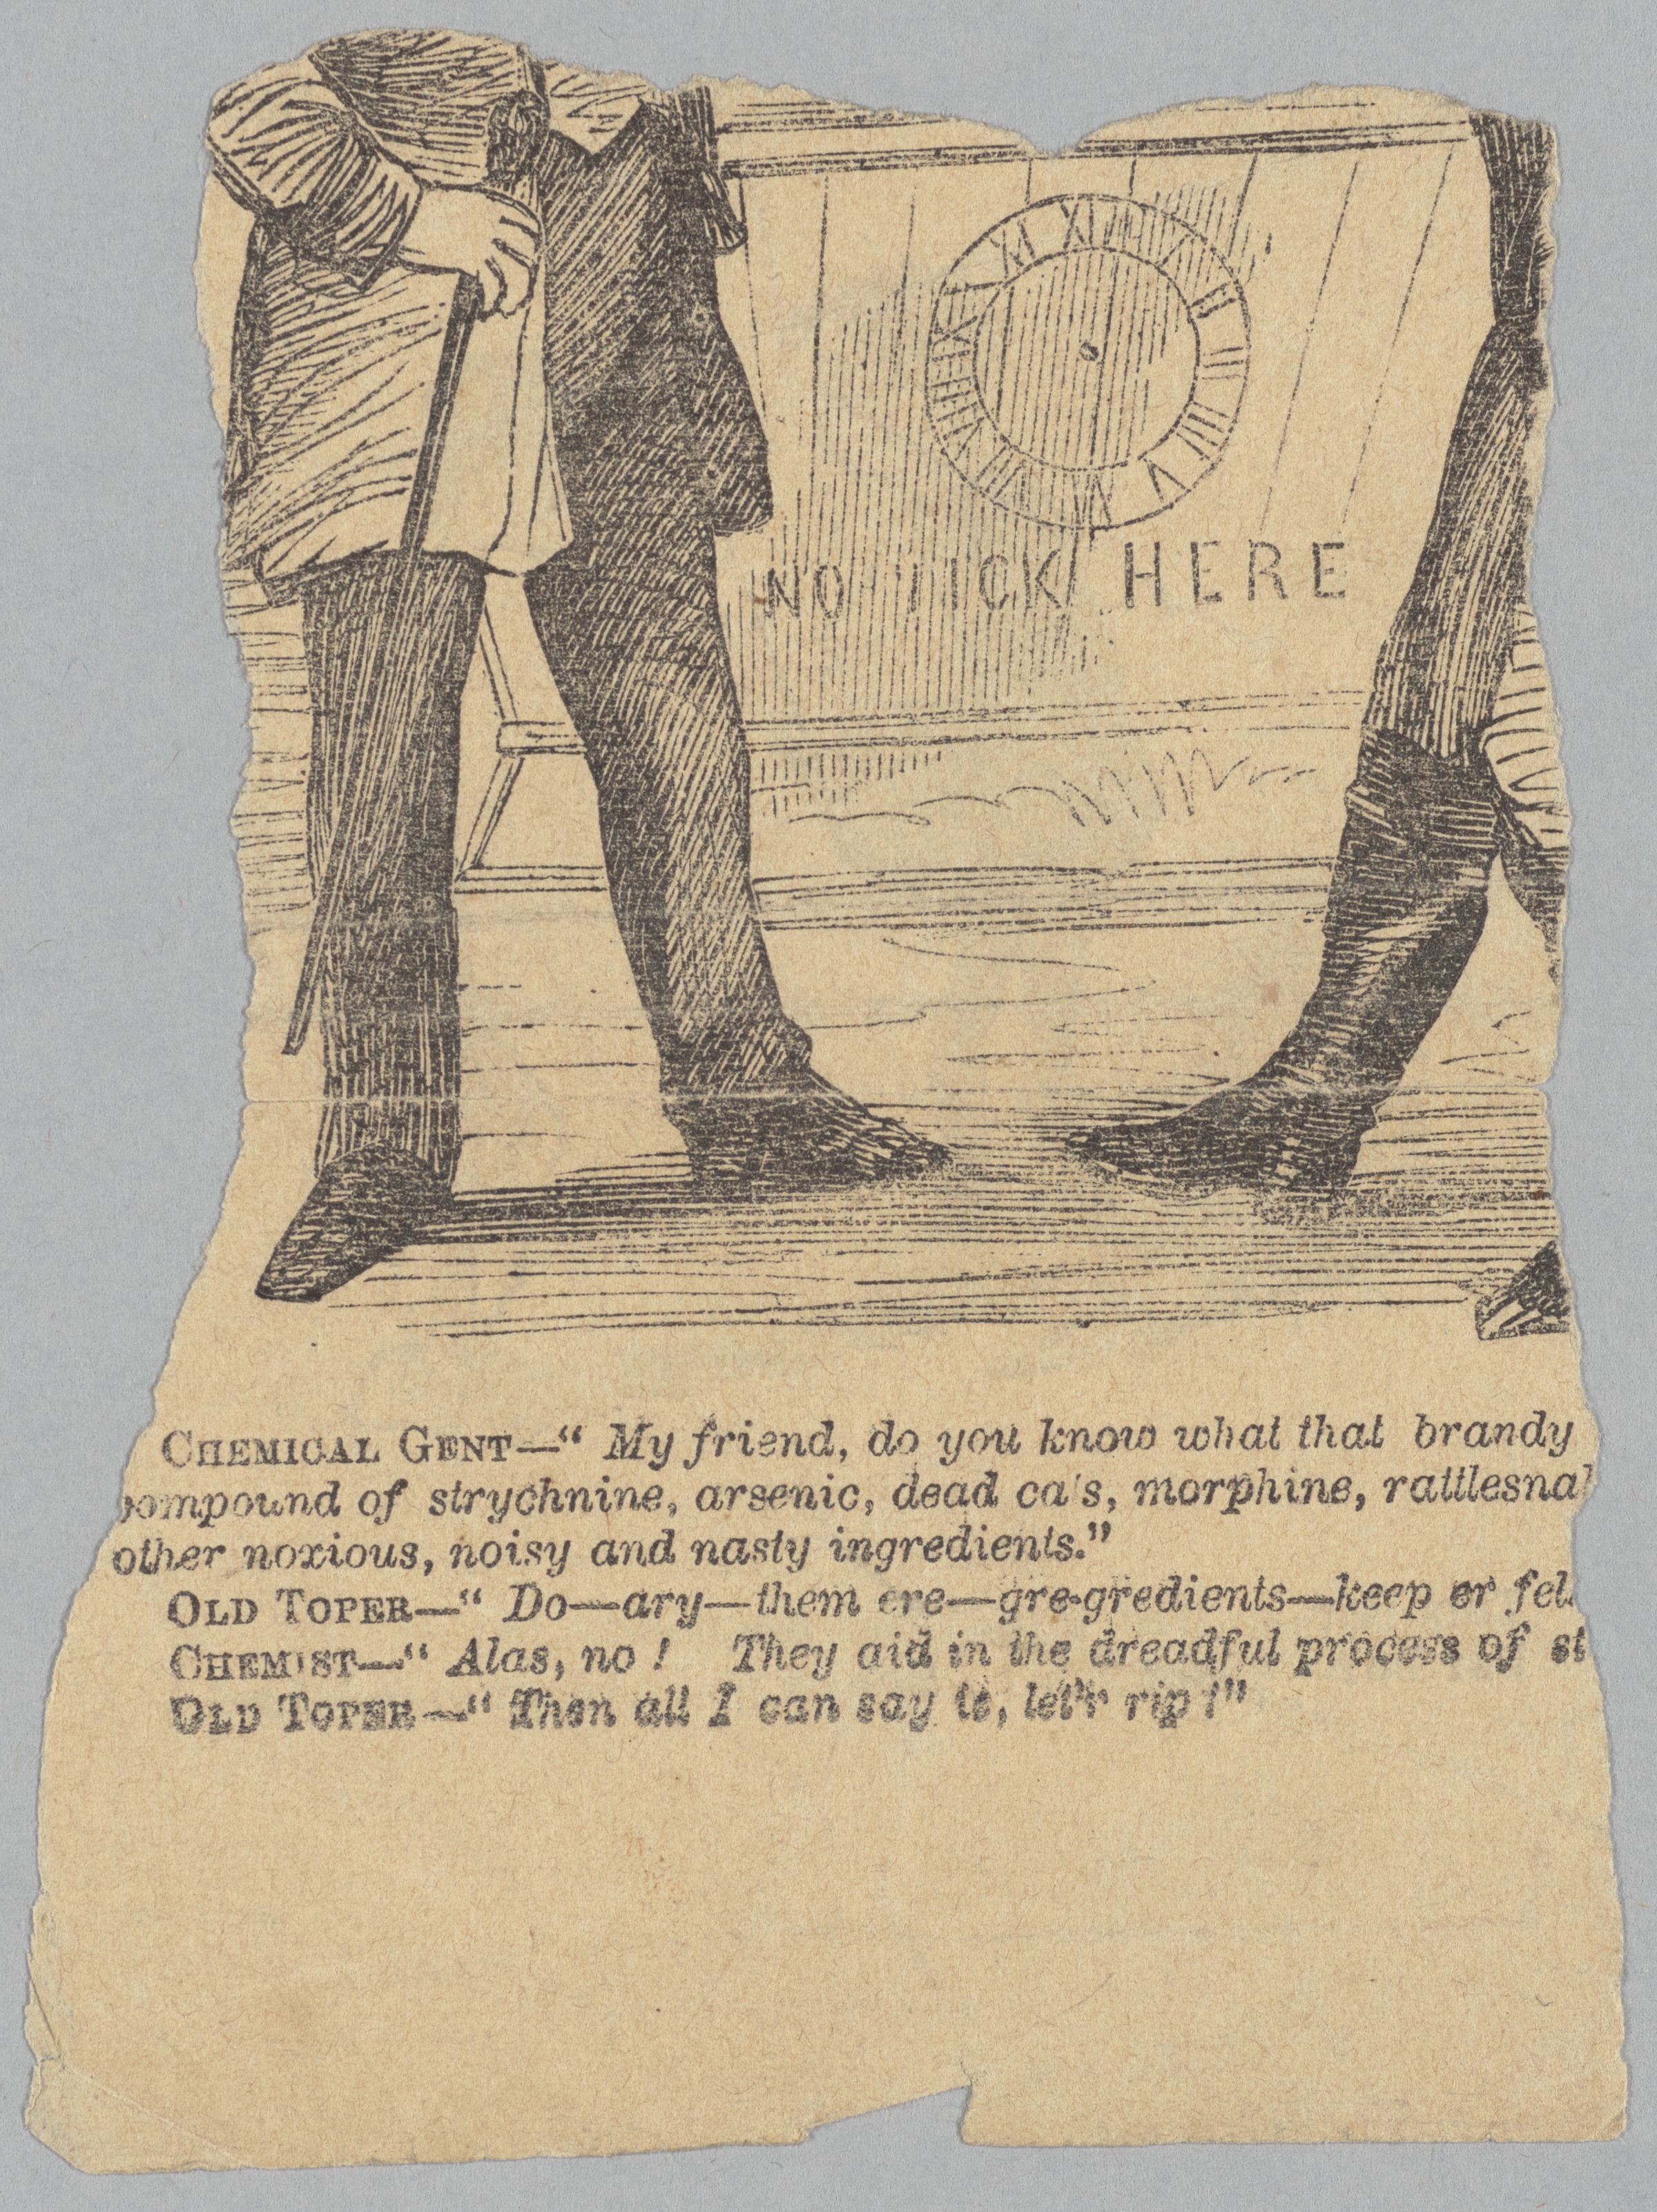 XII
II
III
IIII
V
VI
VII
VIII
IX
X
XI
NO TICK HERE
CHEMICAL GENT—“ My friend, do you know what that brandy
compound of strychnine, arsenic, dead ca s, morphine, rattlesna
other noxious, noisy and nasty ingredients.”
OLD TOPER—“ Do—ary—them ere—gre-gredients—keep er fel
CHEMIST—“ Alas, no ! They aid in the dreadful process of st
OLD TOPER—“ Then all I can say is, let'r rip !”